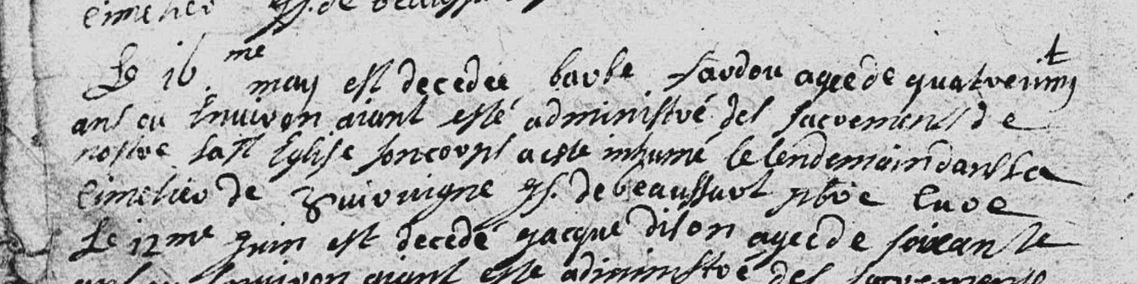 cimetier
Le 16 me may est decedee barbe sardou agee de quatrevint
ans ou Environ aiant esté administré des sacrements de
nostre sate Eglise son corps a esté inhumé le lendemain dans le
cimetier de de beaussart pbre Cure
Le 12 me Juin est decedé Jacque dison agee de soixante
ans ou Environ aiant esté administré des sacrements